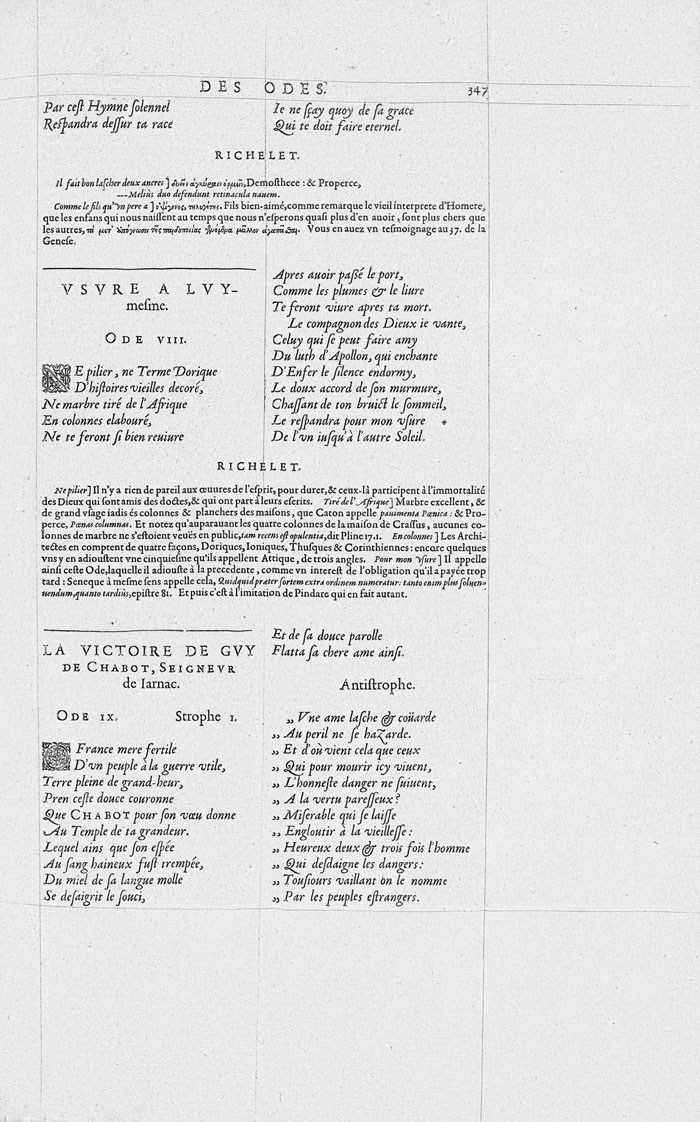 DES ODES.
347
Par cest Hymne solennel
Respandra dessur ta race
Ie ne sçay quoy de sa grace
Qui te doit faire eternel.
RICHELET.
Il fait bon lascher deux ancres] Demosthene : & Properce,
---Meliùs duo defendunt retinacula nauem.
Comme le fils qu'vn pere a] Fils bien-aimé, comme remarque le vieil interprete d'Homere,
que les enfans qui nous naissent au temps que nous n'esperons quasi plus d'en auoir, sont plus chers que
les autres, Vous en auez vn tesmoignage au 37. de la
Genese.
VSVRE A LVY-
mesme.
ODE VIII.
NE pilier, ne Terme Dorique
D'histoires vieilles decoré,
Ne marbre tiré de l'Afrique
En colonnes elabouré,
Ne te feront si bien reuiure
Apres auoir passé le port,
Comme les plumes & le liure
Te feront viure apres ta mort.
Le compagnon des Dieux ie vante,
Celuy qui se peut faire amy
Du luth d'Apollon, qui enchante
D'Enfer le silence endormy,
Le doux accord de son murmure,
Chassant de ton bruict le sommeil,
Le respandra pour mon vsure
De l'vn iusqu'à l'autre Soleil.
RICHELET.
Ne pilier] Il n'y a rien de pareil aux œuures de l'esprit, pour durer, & ceux-là participent à l'immortalité
des Dieux qui sont amis des doctes, & qui ont part à leurs escrits. Tiré de l'Afrique] Marbre excellent, &
de grand vsage iadis és colonnes & planchers des maisons, que Caton appelle pauimenta Pœnica: & Pro-
perce, Pœnas columnas. Et notez qu'auparauant les quatre colonnes de la maison de Crassus, aucunes co-
lonnes de marbre ne s'estoient veuës en public, tam recens est opulentia, dit Pline 17.1. En colonnes] Les Archi-
tectes en comptent de quatre façons, Doriques, Ioniques, Thusques & Corinthiennes: encore quelques
vns y en adioustent vne cinquiesme qu'ils appellent Attique, de trois angles. Pour mon vsure] Il appelle
ainsi ceste Ode, laquelle il adiouste à la precedente, comme vn interest de l'obligation qu'il a payée trop
tard: Seneque à mesme sens appelle cela, Quidquid præter sortem extra ordinem numeratur: tanto enim plus soluen-
uendum, quanto tardiùs, epistre 81. Et puis c'est à l'imitation de Pindare qui en fait autant.
LA VICTOIRE DE GVY
DE CHABOT, SEIGNEVR
de Iarnac.
ODE IX. Strophe 1.
O France mere fertile
D'vn peuple à la guerre vtile,
Terre pleine de grand-heur,
Pren ceste douce couronne
Que CHABOT pour son vœu donne
Au Temple de ta grandeur.
Lequel ains que son espée
Au sang haineux fust trempée,
Du miel de sa langue molle
Se desaigrit le souci,
Et de sa douce parolle
Flatta sa chere ame ainsi.
Antistrophe.
„ Vne ame lasche & coüarde
„ Au peril ne se hazarde.
„ Et d'où vient cela que ceux
„ Qui pour mourir icy viuent,
„ L'honneste danger ne suiuent,
„ A la vertu paresseux?
„ Miserable qui se laisse
„ Engloutir à la vieillesse:
„ Heureux deux & trois fois l'homme
„ Qui desdaigne les dangers:
„ Tousiours vaillant on le nomme
„ Par les peuples estrangers.